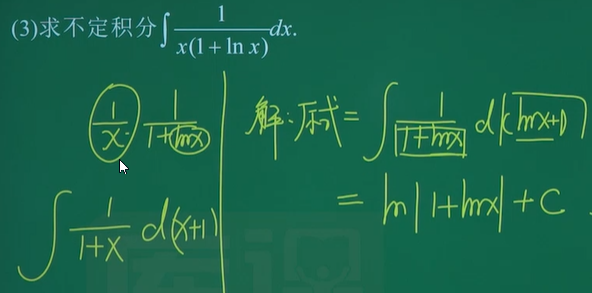 (3)求不定积分∫ 1/(x(1+ln x)) dx.
1/x · 1/(1+lnx)
∫ 1/(1+x) d(x+1)
解:原式=∫ 1/(1+lnx) d(lnx+1)
= ln|1+lnx|+C.